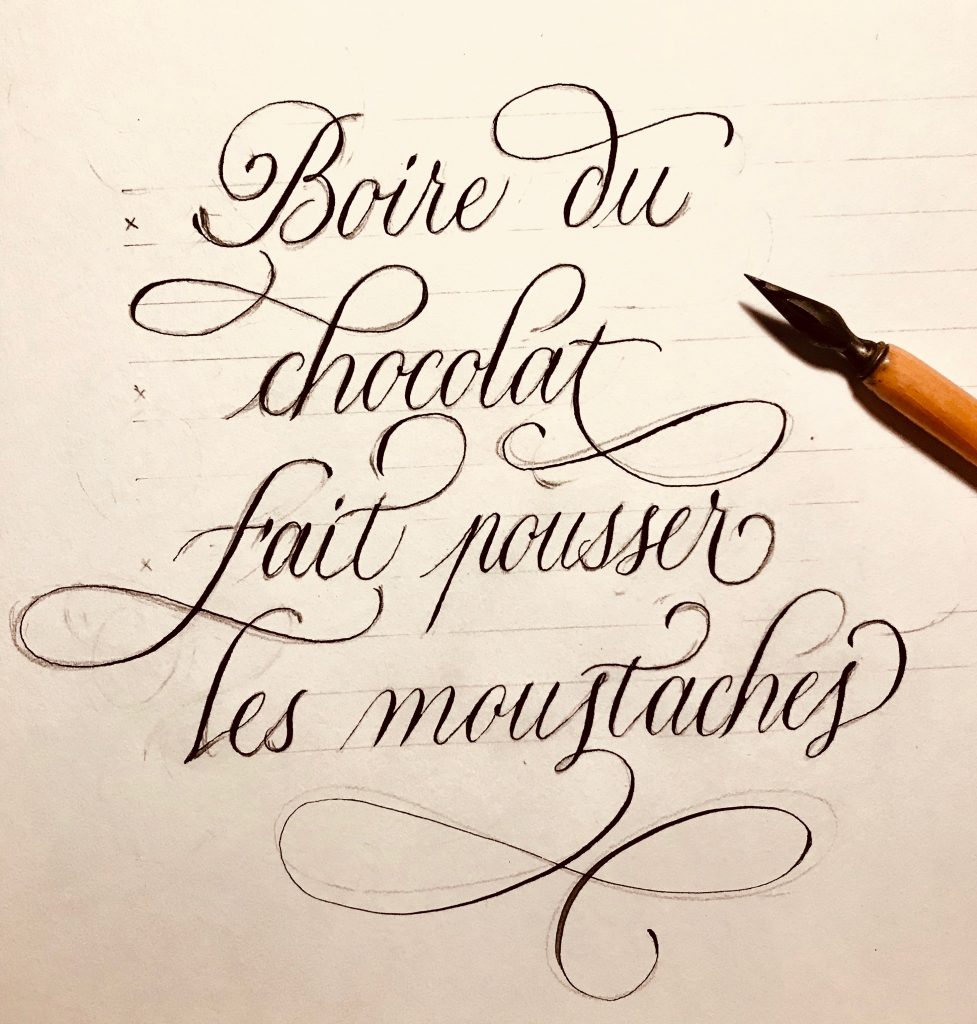 Boire du
chocolat
fait pousser
les moustaches